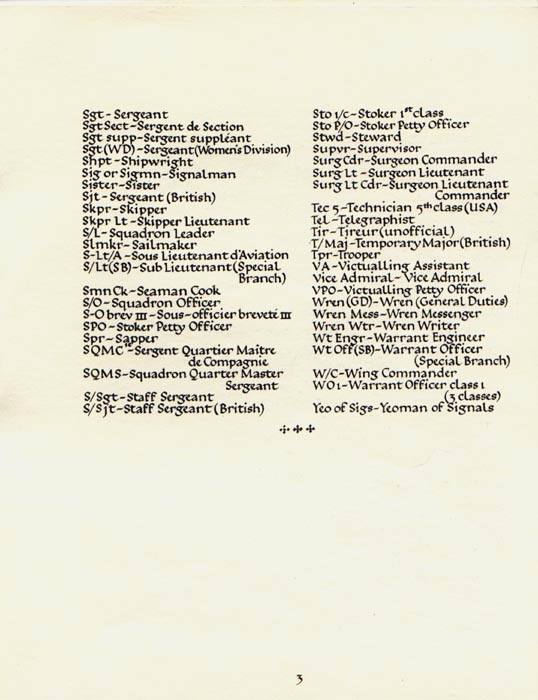 Sgt - Sergeant
Sgt Sect - Sergent de Section
Sgt supp - Sergent suppléant
Sgt (WD) - Sergeant (Women's Division)
Shpt - Shipwright
Sig or Sigmn - Signalman
Sister - Sister
Sjt - Sergeant (British)
Skpr - Skipper
Skpr Lt - Skipper Lieutenant
S/L - Squadron Leader
Slmkr - Sailmaker
S-Lt/A - Sous Lieutenant d'Aviation
S/Lt(SB) - Sub Lieutenant (Special
Branch)
Smn Ck - Seaman Cook
S/O - Squadron Officer
S-O brev III - Sous-officier breveté III
SPO - Stoker Petty Officer
Spr - Sapper
SQMC - Sergent Quartier Maitre
de Compagnie
SQMS - Squadron Quarter Master
Sergeant
S/Sgt - Staff Sergeant
S/Sjt - Staff Sergeant (British)
Sto 1/c - Stoker 1st class
Sto P/O - Stoker Petty Officer
Stwd - Steward
Supvr - Supervisor
Surg Cdr - Surgeon Commander
Surg Lt - Surgeon Lieutenant
Surg Lt Cdr - Surgeon Lieutenant
Commander
Tec 5 - Technician 5th class (USA)
Tel - Telegraphist
Tir - Tireur (unofficial)
T/Maj - Temporary Major (British)
Tpr - Trooper
VA - Victualling Assistant
Vice Admiral - Vice Admiral
VPO - Victualling Petty Officer
Wren (GD) - Wren (General Duties)
Wren Mess - Wren Messenger
Wren Wtr - Wren Writer
Wt Engr - Warrant Engineer
Wt Off (SB) - Warrant Officer
(Special Branch)
W/C - Wing Commander
WO1 - Warrant Officer class 1
(3 classes)
Yeo of Sigs - Yeoman of Signals
3